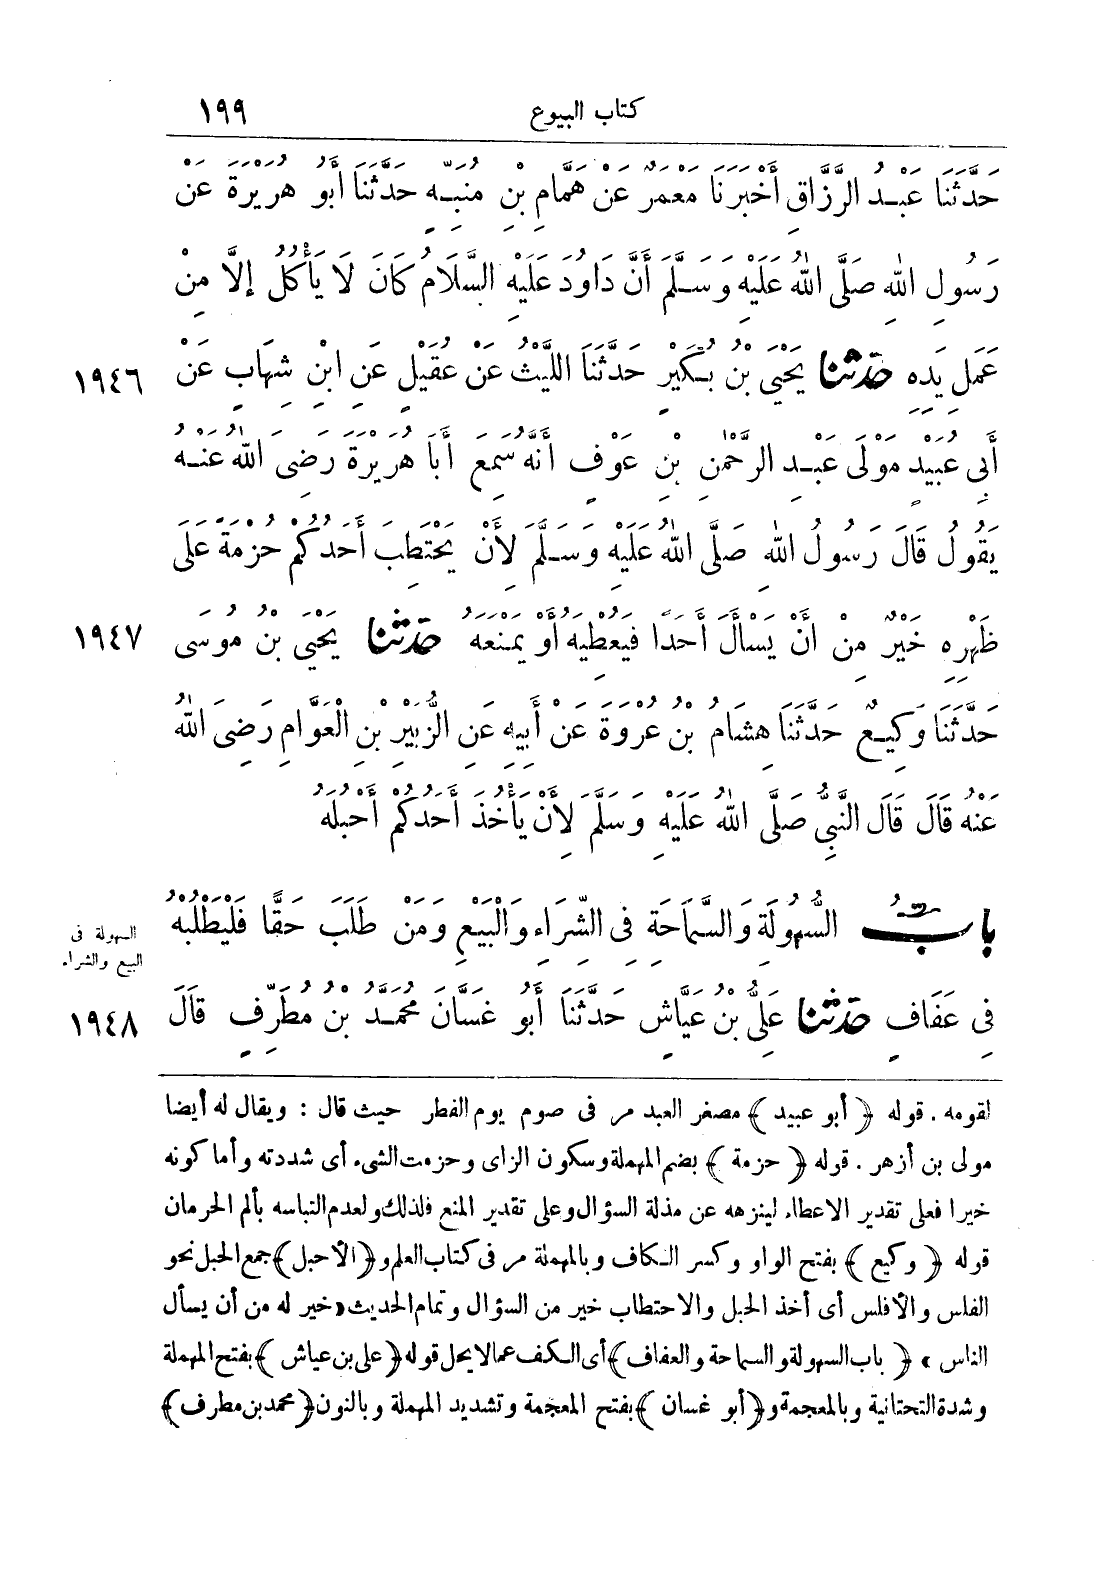 كتاب البيوع ١٩٩
حَدَّثَنَا عَبْدُ الرَّزَّاقِ أَخْبَرَنَا مَعْمَرٌ عَنْ هَمَّامِ بْنِ مُنَبِّهٍ حَدَّثَنَا أَبُو هُرَيْرَةَ عَنْ
رَسُولِ اللهِ صَلَّى اللهُ عَلَيْهِ وَسَلَّمَ أَنَّ دَاوُدَ عَلَيْهِ السَّلَامُ كَانَ لَا يَأْكُلُ إِلَّا مِنْ
عَمَلِ يَدِهِ حَدَّثَنَا يَحْيَى بْنُ بُكَيْرٍ حَدَّثَنَا اللَّيْثُ عَنْ عُقَيْلٍ عَنِ ابْنِ شِهَابٍ عَنْ ١٩٤٦
أَبِي عُبَيْدٍ مَوْلَى عَبْدِ الرَّحْمٰنِ بْنِ عَوْفٍ أَنَّهُ سَمِعَ أَبَا هُرَيْرَةَ رَضِىَ اللهُ عَنْهُ
يَقُولُ قَالَ رَسُولُ اللهِ صَلَّى اللهُ عَلَيْهِ وَسَلَّمَ لِأَنْ يَحْتَطِبَ أَحَدُكُمْ حُزْمَةً عَلَى
ظَهْرِهِ خَيْرٌ مِنْ أَنْ يَسْأَلَ أَحَدًا فَيُعْطِيَهُ أَوْ يَمْنَعَهُ حَدَّثَنَا يَحْيَى بْنُ مُوسَى ١٩٤٧
حَدَّثَنَا وَكِيعٌ حَدَّثَنَا هِشَامُ بْنُ عُرْوَةَ عَنْ أَبِيهِ عَنِ الزُّبَيْرِ بْنِ الْعَوَّامِ رَضِىَ اللهُ
عَنْهُ قَالَ قَالَ النَّبِىُّ صَلَّى اللهُ عَلَيْهِ وَسَلَّمَ لِأَنْ يَأْخُذَ أَحَدُكُمْ أَحْبُلَهُ
بَابُ السُّهُولَةِ وَالسَّمَاحَةِ فِى الشِّرَاءِ وَالْبَيْعِ وَمَنْ طَلَبَ حَقًّا فَلْيَطْلُبْهُ
السهولة فى
البيع والشراء
فِى عَفَافٍ حَدَّثَنَا عَلِىُّ بْنُ عَيَّاشٍ حَدَّثَنَا أَبُو غَسَّانَ مُحَمَّدُ بْنُ مُطَرِّفٍ قَالَ ١٩٤٨
لقومه . قوله ﴿أبو عبيد﴾ مصغر العبد مر فى صوم يوم الفطر حيث قال : ويقال له أيضا
مولى بن أزهر . قوله ﴿حزمة﴾ بضم المهملة وسكون الزاى وحزمت الشىء أى شددته وأما كونه
خيرا فعلى تقدير الاعطاء لينزهه عن مذلة السؤال وعلى تقدير المنع فلذلك ولعدم التباسه بألم الحرمان
قوله ﴿وكيع﴾ بفتح الواو وكسر الكاف وبالمهملة مر فى كتاب العلم و﴿الأحبل﴾ جمع الحبل نحو
الفلس والأفلس أى أخذ الحبل والاحتطاب خير من السؤال وتمام الحديث «خير له من أن يسأل
الناس» ﴿باب السهولة والسماحة والعفاف﴾ أى الكف عما لا يحل قوله ﴿على بن عياش﴾ بفتح المهملة
وشدة التحتانية وبالمعجمة و﴿أبو غسان﴾ بفتح المعجمة وتشديد المهملة وبالنون ﴿محمد بن مطرف﴾